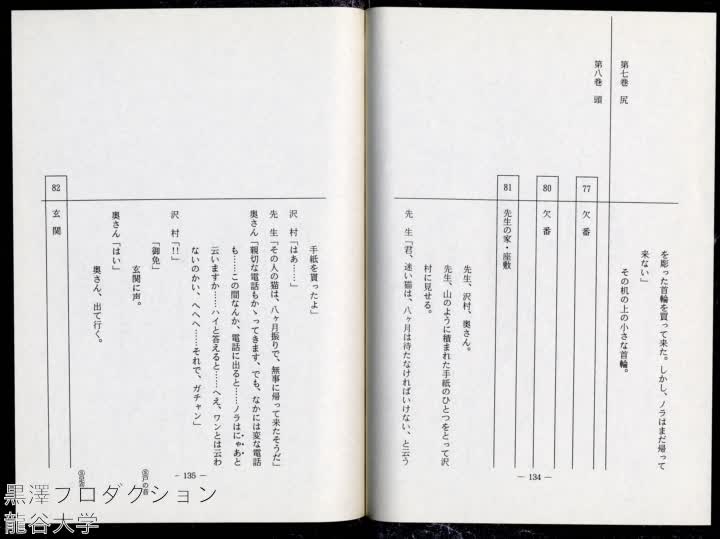 第七巻 尻
第八巻 頭
を彫った首輪を買って来た。しかし、ノラはまだ帰って
来ない」
その机の上の小さな首輪。
77 欠番
80 欠番
81 先生の家・座敷
先生、沢村、奥さん。
先生、山のように積まれた手紙のひとつをとって沢
村に見せる。
先 生「君、迷い猫は、八ヶ月は待たなければいけない、と云う
- 134 -
手紙を貰ったよ」
沢 村「はあ……」
先 生「その人の猫は、八ヶ月振りで、無事に帰って来たそうだ」
奥さん「親切な電話もかゝってきます、でも、なかには変な電話
も……この間なんか、電話に出ると……ノラはにゃあと
云いますか……ハイと答えると……へえ、ワンとは云わ
ないのかい、へへへ……それで、ガチャン」
沢 村「!!」
「御免」
玄関に声。
奥さん「はい」
奥さん、出て行く。
82 玄関
- 135 -
戸の音
黒澤プロダクション
龍谷大学